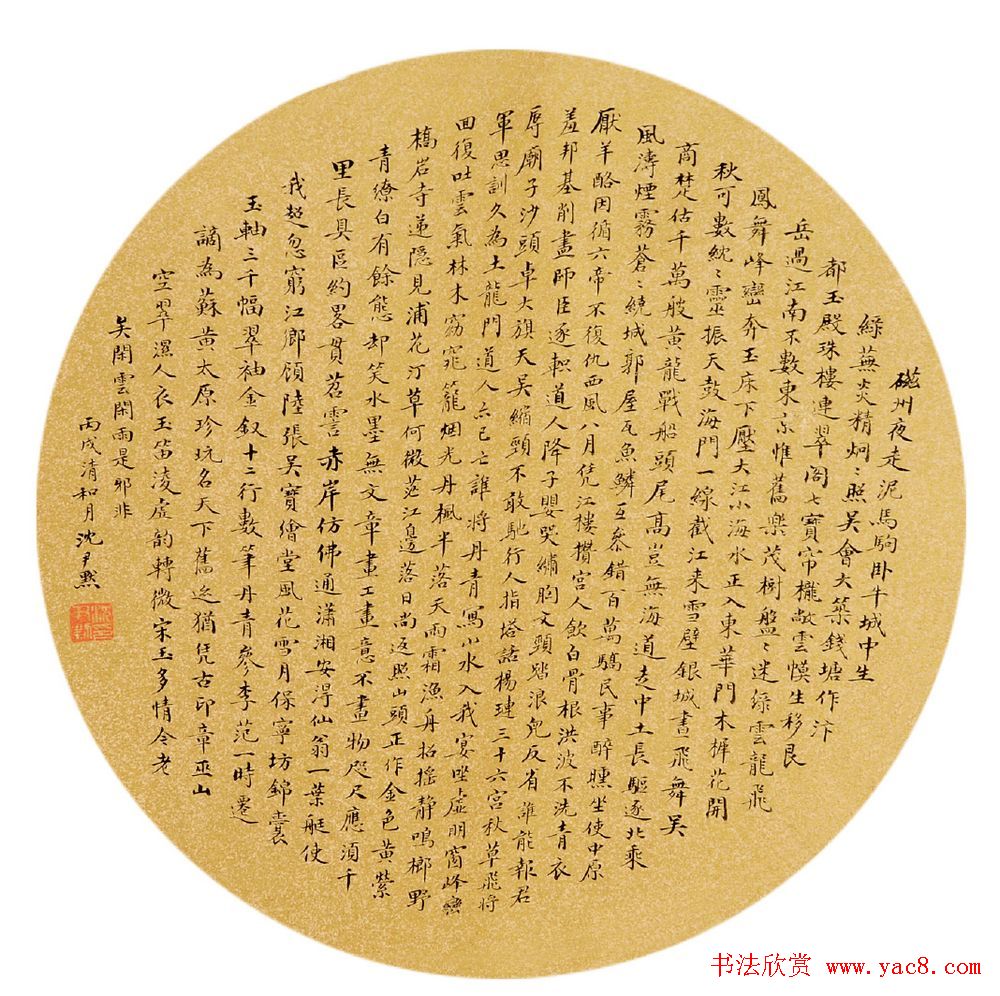 磁州夜走泥馬駒臥牛城中生
綠蕪炎精炯〻照吳會大築錢塘作汴
都玉殿珠樓連翠閣七寶帘櫳敞雲幙生移艮
岳過江南不數東京惟舊樂茂樹盤〻迷綠雲龍飛
鳳舞峰巒奔玉床下壓大江小海水正入東華門木樨花開
秋可數姺〻靈振天鼓海門一線截江來雪壁銀城晝飛舞吳
商楚估千萬艘黃龍戰船頭尾高豈無海道走中土長驅逐北乘
風濤煙霧蒼〻繞城郭屋瓦魚鱗互參錯百萬驕民事醉醺坐使中原
厭羊酪因循六帝不復仇西風八月凭江樓攢宮人飲白骨根洪波不洗青衣
羞邦基削盡師臣逐軹道人降子嬰哭繡胸文頸踏浪兒反首誰能報君
辱廟子沙頭卓大旗天吳縮頸不敢馳行人指塔話楊璉三十六宮秋草飛將
軍思訓久為土龍門道人亦已亡誰將丹青寫山水入我宴坐虛明窗峰巒
回復吐雲氣林木窈窕籠烟光丹楓半落天雨霜漁舟招搖靜鳴榔野
橋岩寺遞隱見浦花汀草何微茫江邊落日尚返照山頭正作金色黃縈
青繚白有餘態却笑水墨無文章畫工畫意不畫物咫尺應須千
里長具區約畧貫苕霅赤岸仿佛通瀟湘安得仙翁一葉艇使
我超忽窮江鄉顧陸張吳寶繪堂風花雪月保寧坊錦囊
玉軸三千幅翠袖金釵十二行數筆丹青參李范一時遷
謫為蘇黃太原珍玩名天下舊迹猶凭古印章巫山
空翠濕人衣玉笛凌虛韵轉微宋玉多情今老
矣閑雲閑雨是邪非
丙戌清和月沈尹默
书法欣赏 www.yac8.com